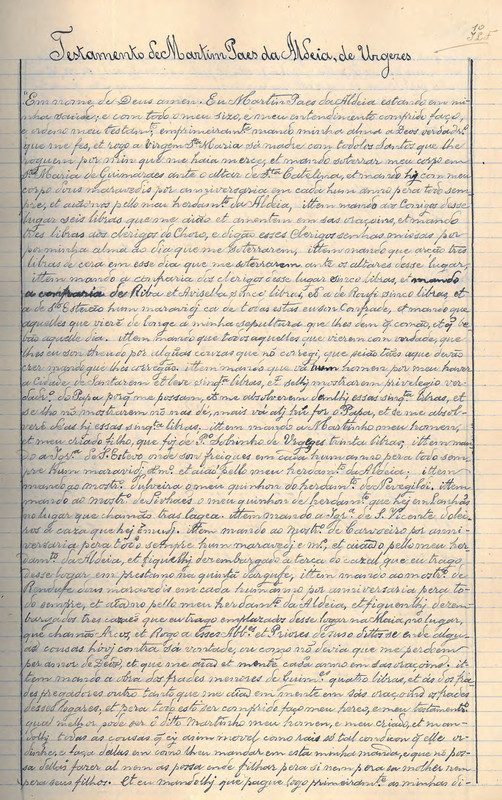 Testamento de Martim Paes da Aldeia, de Urgezes
"Em nome de Deus amen. Eu Martim Paes da Aldeia estando em mi-
nha saude, e com todo o meu sizo, e meu entendimento comprido faço,
e ordeno meu testamt.º emprimeiramt.e mando minha alma a Deus
que me fes, et rogo a Virgem Sta Maria sá madre com todolos Santos que lhe
roguem por mim que me haia merçe, et mando soterrar meu corpo em
Sta Maria de Guimaraes ante o altar de Sta Catelina, et mando hj com meu
corpo dous maravedis por anniversaria em cada hum anno pera todo sem-
pre, et aiaonos pello meu herdamt.º da Aldeia, ittem mando aos Coniges desse
lugar seis libras que me aião et amentem em sas oraçoins, et mando
tres libras aos clerigos do Choro, e digão esses Clerigos senhas missas por
por minha alma ao dia que me soterrarem, ittem mando que ardão tres
libras de cera em esse dia que me soterrarem ante os altares desse lugar,
ittem mando a confraria dos clerigos desse lugar sinco libras, et mando
a confraria de Riba et sinco libras, et a de sinco libras, et
a de Sto Estevão hum maravedj ca de todas estas eu son Confrade, et mando que
aquelles que vierē de longe a minha sepultura que lhes dem q̃ comão, et q̃ be-
bão aquelle dia. ittem mando que todos aquelles que vierem com verdade, que
lhes eu son theudo por algũas couzas que nō corregi, que seião
crer mando que lhes corregão. ittem mando que vá hum homem por meu haver
a Cidade de Santarem et leve sinqta libras, et selhj mostrarem privilegio ver-
dadr.º do Papa porq̃ me possam, et me absolverem demlhj essas sinqta libras, et
se lho nō mostrarem nō nas dē, mais vá a hj hu for o Papa, et se me absol-
verē dēas hj essas sinqta libras. ittem mando a Martinho meu homem,
et meu criado filho, que foj de Po Sobrinho de Urgezes trinta libras, ittem man-
do a Igr.a de S. Estevo onde son freiguez em cada hum anno pera todo sem-
pre hum maravedj et mo. et aiao pello meu herdamt.º da Aldeia. ittem
mando ao mostro. o meu quinhon do herdamt.º de ittem
mando ao mostro. de o meu quinhon de herdamt.º que hej en
no lugar que chamão tras lagea. ittem mando a Igr.a de S. Vicente
ros q̃ caza que hej. ittem mando ao Mostro. de Carvoeiro por anni-
versaria pera todo sempre hum maravedj e mo. et aiao pello meu her-
damt.º da Aldeia, et fiquelhj dezembargado a terça do cazal que eu trago
desse lugar em prestamo na quintã ittem mando ao mostro. de
Rendufe dous maravedis em cada hum anno por anniversaria pera to-
do sempre, et aiao pello meu herdamt.º da Aldeia, et fiquenlhj dezem-
bargados tres cazaes que eu trago emplazados desse lugar na Maia no lugar,
que chamão Arcos, et Rogo a Esses Abb.es et Priores de suso dittos se ende algu-
as cousas houj contra Sá vontade, ou como nō devia que me perdoem
per amor de Deos, et que me aiaō et mente cada anno em sas oraçoins. it-
tem mando a obra dos frades menores de Guimes quatro libras, et ás dos fra-
des pregadores outro tanto que me aiao em mente em sás oraçoins os frades
desses logares, et pera todo este ser comprido faço meu herez, e meu testamt.º
qual milhor pode ser o ditto Martinho meu homem, e meu criado, et man-
dolhj todas ás cousas q̃ ej asim movel como raiz só tal condicom q̃ elle or-
dinhe, e faça dellas em como lheu mandar em esta minha manda, e que nō pos-
sa dellas fazer al nem as possa ende filhar pera si nem pera sa molher nem
pera seus filhos. Et eu mandolhj que pague logo primeiramt.e as minhas di-